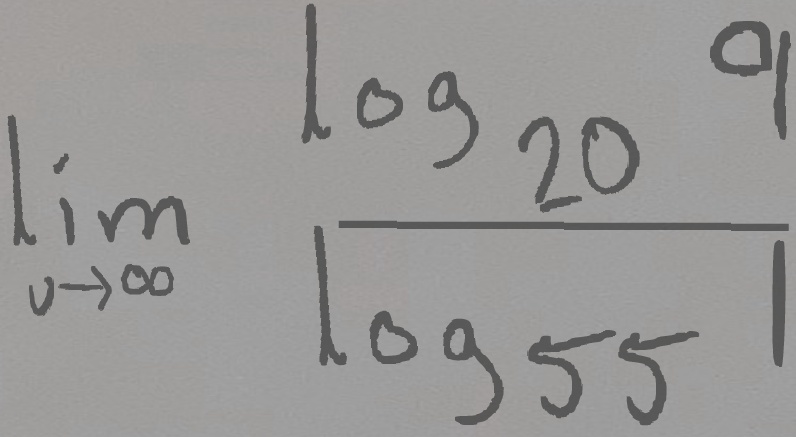 \lim_{v \to \infty} \frac{\log_{20} 9}{\log_{55} 1}